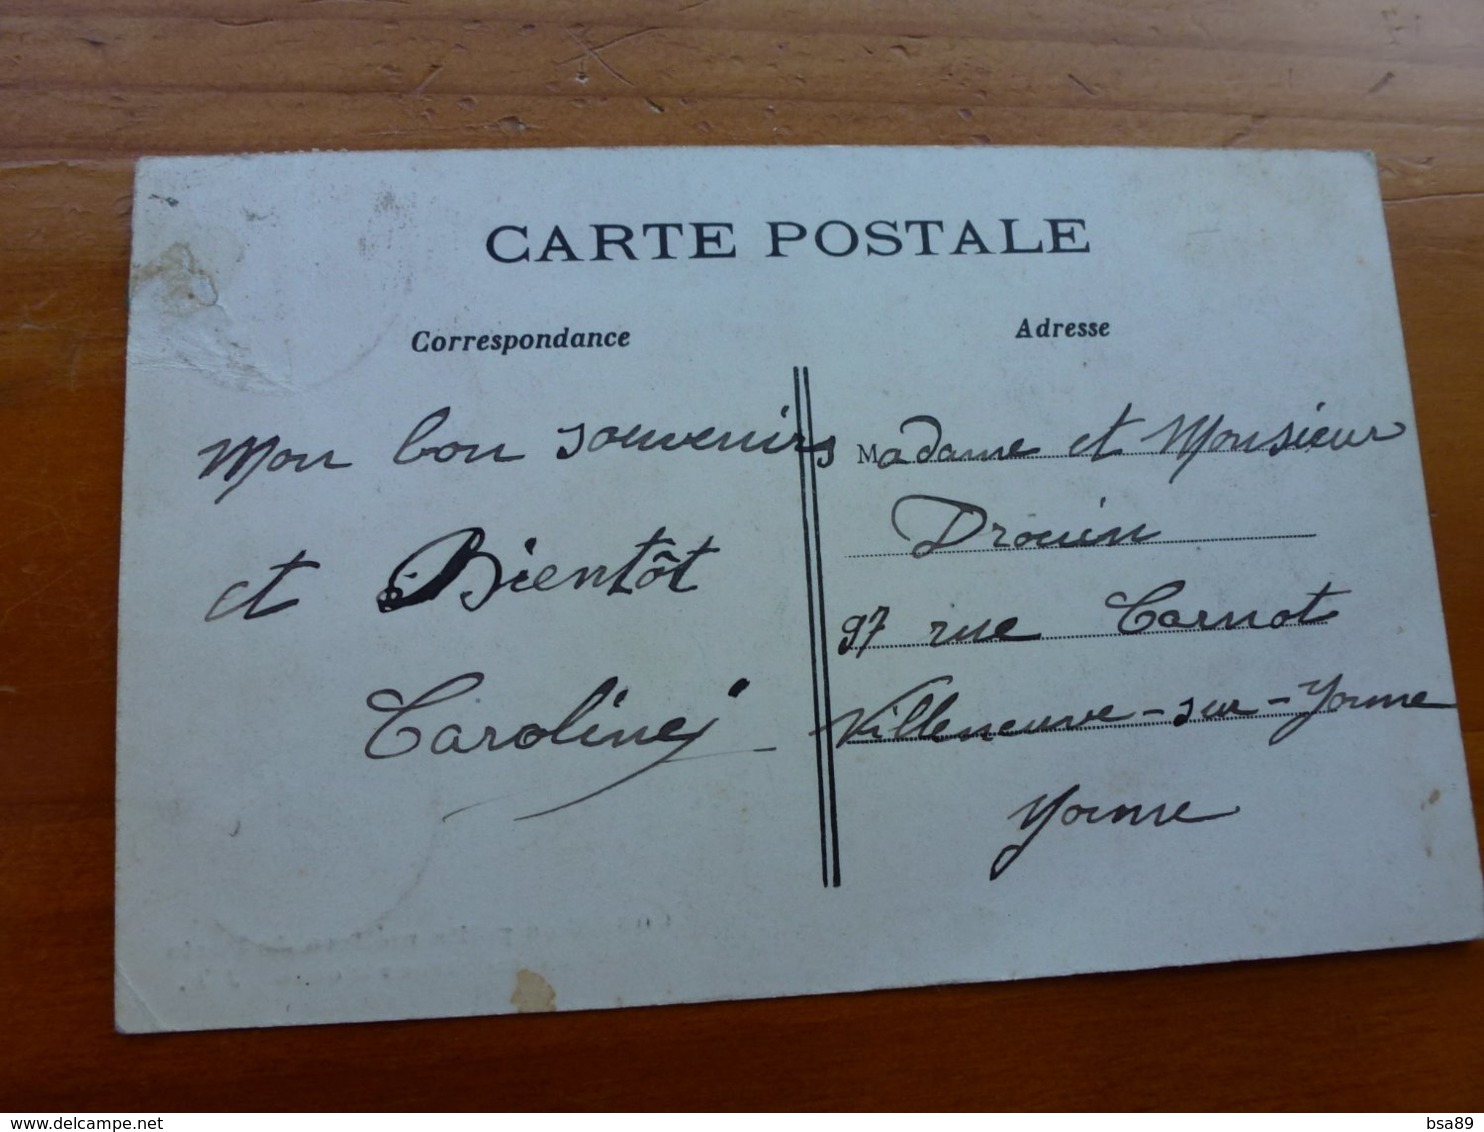 CARTE POSTALE
Correspondance
Mon bon souvenirs
et Bientôt
Caroline
Adresse
Madame et Monsieur
Drouin
97 rue Carnot
Villeneuve-sur-Yonne
Yonne
bsa89